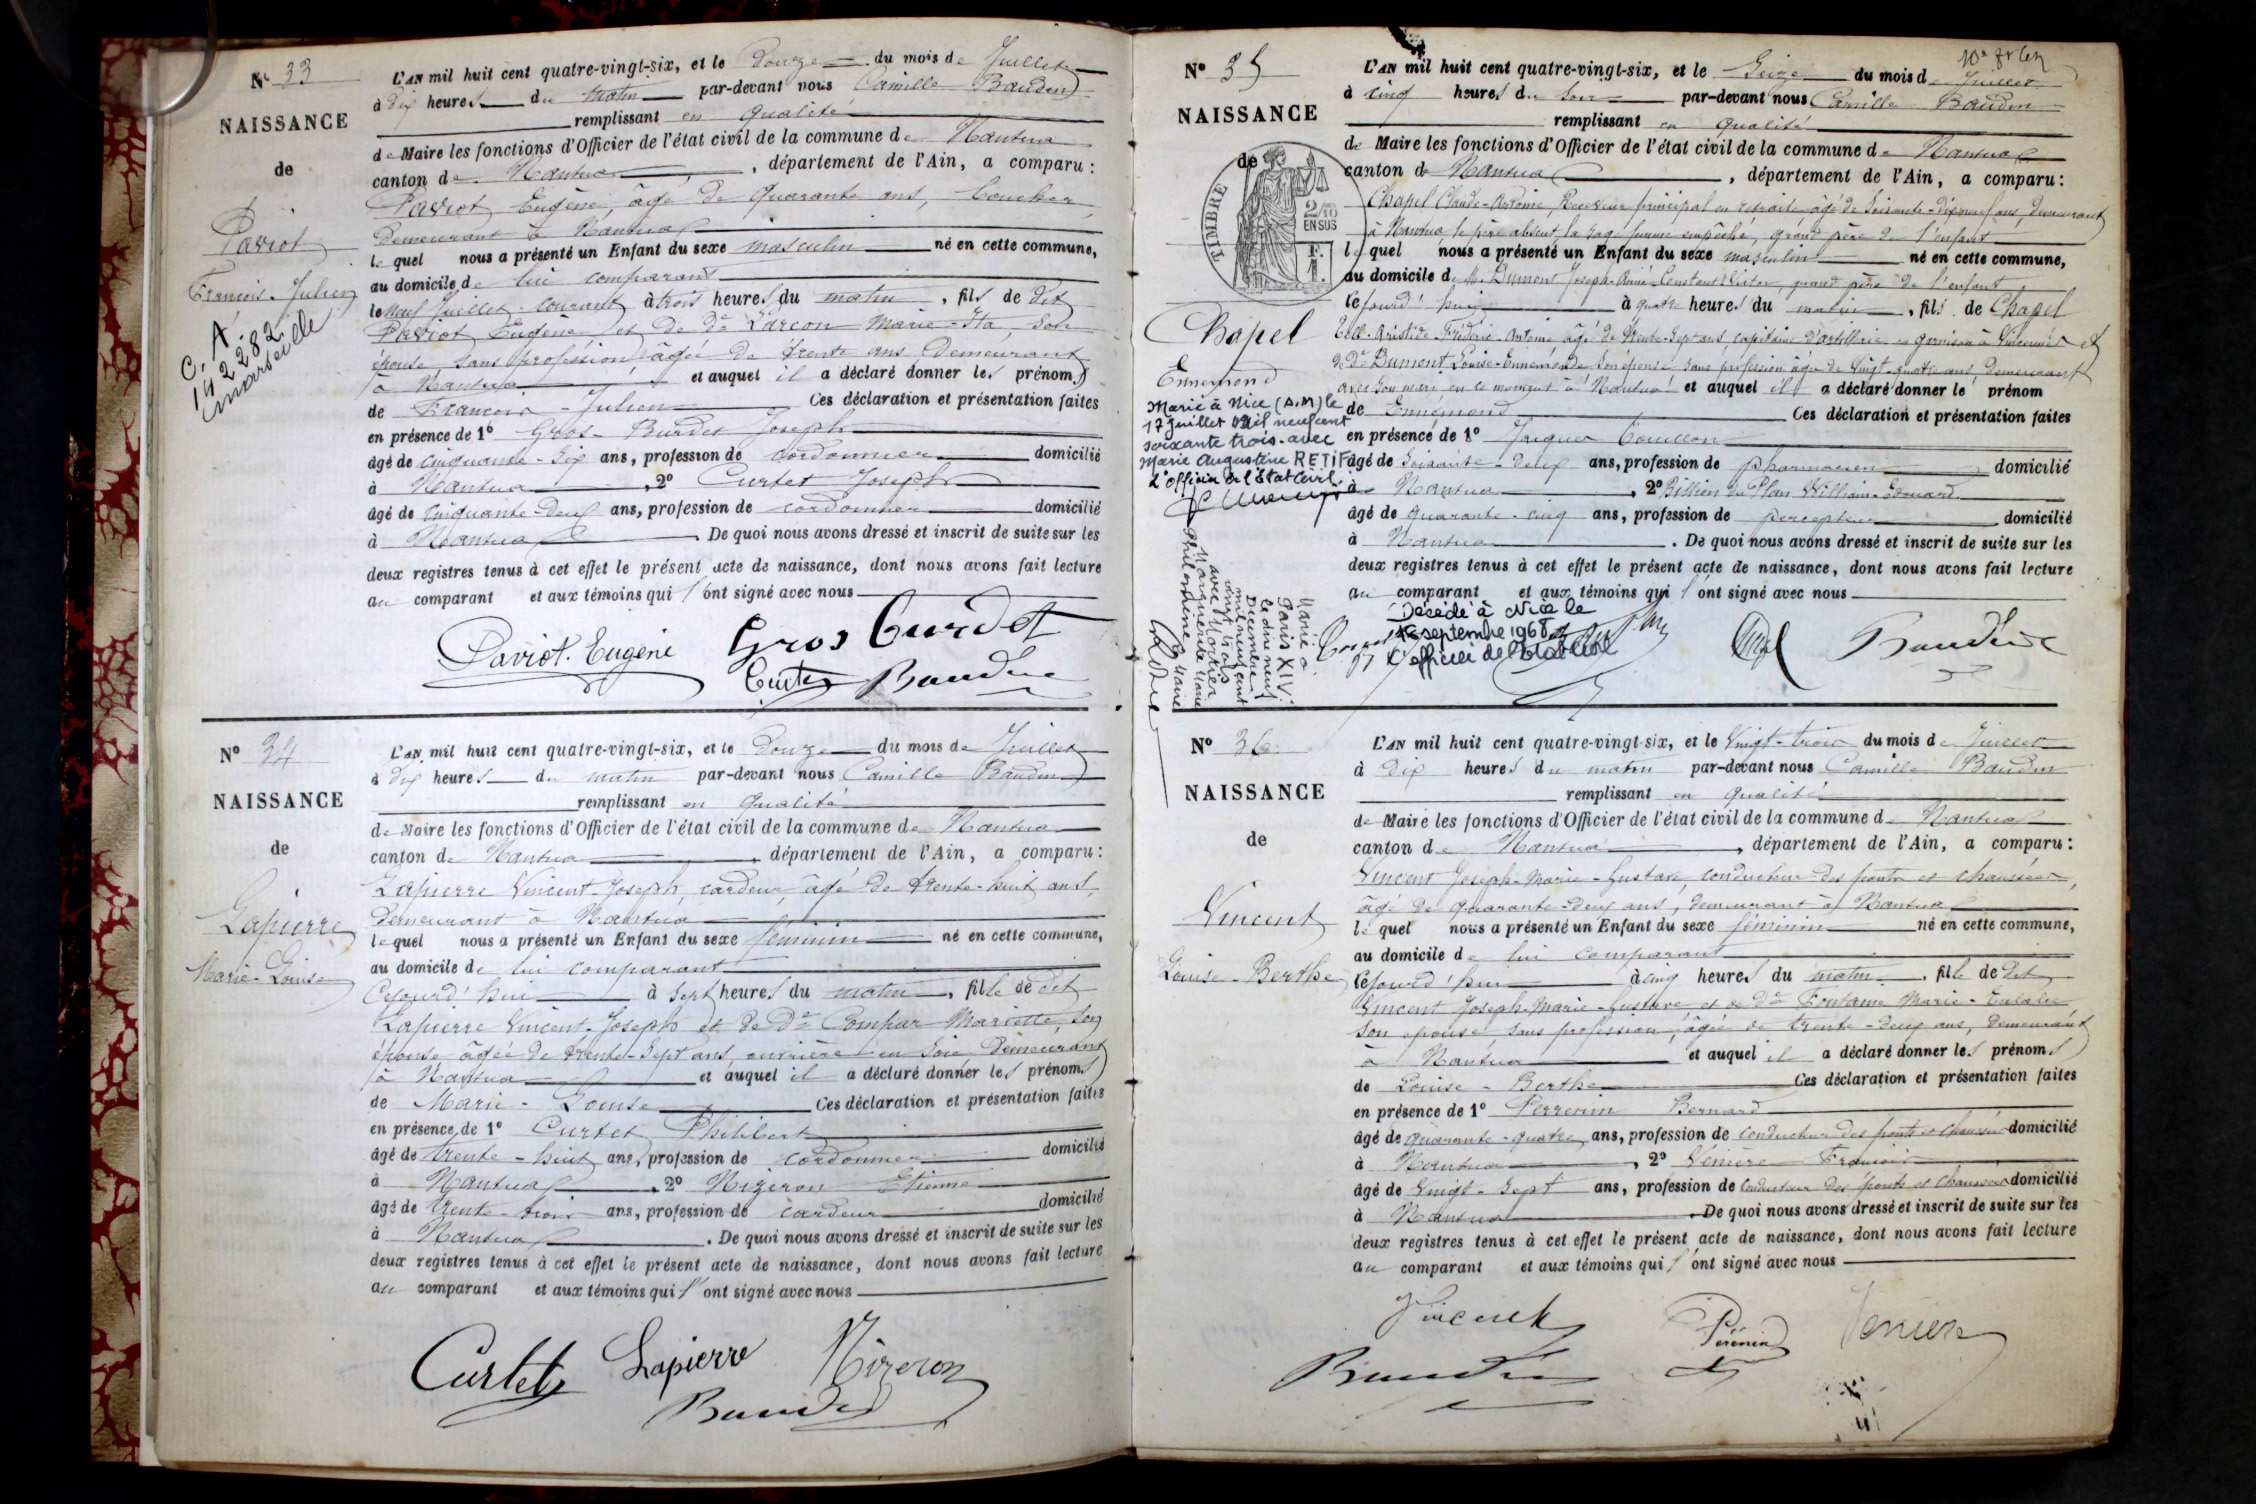 Nº 33
NAISSANCE
de
Paviot
François-Julien
C. A.
142282
Marseille
L'AN mil huit cent quatre-vingt-six, et le Douze du mois de Juillet
à dix heures du matin par-devant nous Camille Baudin
remplissant en qualité
de Maire les fonctions d'Officier de l'état civil de la commune de Nantua
canton de Nantua, département de l'Ain, a comparu :
Paviot Eugène, âgé de quarante ans,
demeurant à Nantua
lequel nous a présenté un Enfant du sexe masculin né en cette commune,
au domicile de lui comparant
le neuf Juillet courant à trois heures du matin, fils de dit
Paviot Eugène et de De Larçon Marie-Ita, son
épouse, sans profession, âgée de trente ans demeurant
à Nantua et auquel il a déclaré donner les prénoms
de François-Julien Ces déclaration et présentation faites
en présence de 1º Gros-Burdet Joseph
âgé de cinquante-six ans, profession de cordonnier domicilié
à Nantua, 2º Curtet Joseph
âgé de cinquante-deux ans, profession de cordonnier domicilié
à Nantua De quoi nous avons dressé et inscrit de suite sur les
deux registres tenus à cet effet le présent acte de naissance, dont nous avons fait lecture
au comparant et aux témoins qui l'ont signé avec nous
Paviot. Eugène Gros Burdet
Curtet Baudin
Nº 34
NAISSANCE
de
Lapierre
Marie-Louise
L'AN mil huit cent quatre-vingt-six, et le Douze du mois de Juillet
à dix heures du matin par-devant nous Camille Baudin
remplissant en qualité
de Maire les fonctions d'Officier de l'état civil de la commune de Nantua
canton de Nantua, département de l'Ain, a comparu :
Lapierre Vincent-Joseph, cardeur, âgé de trente-huit ans,
demeurant à Nantua
lequel nous a présenté un Enfant du sexe féminin né en cette commune,
au domicile de lui comparant
Cejourd'hui à sept heures du matin, fille de dit
Lapierre Vincent-Joseph et de De Compar Mariette, son
épouse âgée de trente-sept ans, ouvrière en soie, demeurant
à Nantua et auquel il a déclaré donner les prénoms
de Marie-Louise Ces déclaration et présentation faites
en présence de 1º Curtet Philibert
âgé de trente-huit ans, profession de cordonnier domicilié
à Nantua, 2º Nizeron Etienne
âgé de trente-trois ans, profession de cardeur domicilié
à Nantua. De quoi nous avons dressé et inscrit de suite sur les
deux registres tenus à cet effet le présent acte de naissance, dont nous avons fait lecture
au comparant et aux témoins qui l'ont signé avec nous
Curtet Lapierre Nizeron
Baudin
Nº 35
NAISSANCE
de
TIMBRE
2/10
EN SUS
Chapel
Ennemond
Marié à Nice (A.M) le
17 juillet mil neuf cent
soixante trois avec
Marie Augustine RETIF
L'Officier de l'Etat Civil.
Marié à
Paris XIV
le dix neuf
Décembre
mil neuf cent
vingt trois
avec Mortier
Marguerite Marie
Philomène
L'AN mil huit cent quatre-vingt-six, et le Seize du mois de Juillet
à cinq heures du soir par-devant nous Camille Baudin
remplissant en qualité
de Maire les fonctions d'Officier de l'état civil de la commune de Nantua
canton de Nantua, département de l'Ain, a comparu :
Chapel Claude-Antoine, Receveur principal en retraite âgé de soixante-dix-neuf ans, demeurant
à Nantua, le père absent, la sage-femme empêchée, grand père de l'enfant
lequel nous a présenté un Enfant du sexe masculin né en cette commune,
au domicile de Mr Dumont Joseph-Aimé-Constant-Victor, grand père de l'enfant
Cejourd'hui à quatre heures du matin, fils de Chapel
Aristide Frédéric Antoine âgé de trente-sept ans, capitaine d'artillerie en garnison à Vincennes et
de De Dumont Louise-Ennemonde son épouse sans profession âgée de vingt-quatre ans demeurant
avec son mari en ce moment à Nantua et auquel il a déclaré donner le prénom
de Ennemond Ces déclaration et présentation faites
en présence de 1º Jacques Couillon
âgé de soixante-deux ans, profession de pharmacien domicilié
à Nantua, 2º Billion du Plan William-Edouard
âgé de quarante-cinq ans, profession de percepteur domicilié
à Nantua. De quoi nous avons dressé et inscrit de suite sur les
deux registres tenus à cet effet le présent acte de naissance, dont nous avons fait lecture
au comparant et aux témoins qui l'ont signé avec nous
Décédé à Nice le
septembre 1968
L'officier de l'Etat Civil
Chapel Baudin
Nº 36
NAISSANCE
de
Vincent
Louise-Berthe
L'AN mil huit cent quatre-vingt-six, et le Vingt-trois du mois de Juillet
à dix heures du matin par-devant nous Camille Baudin
remplissant en qualité
de Maire les fonctions d'Officier de l'état civil de la commune de Nantua
canton de Nantua, département de l'Ain, a comparu :
Vincent Joseph-Marie-Gustave, conducteur des ponts et chaussées,
âgé de quarante-deux ans, demeurant à Nantua
lequel nous a présenté un Enfant du sexe féminin né en cette commune,
au domicile de lui comparant
Cejourd'hui à cinq heures du matin, fille de dit
Vincent Joseph-Marie-Gustave et de De Fontaine Marie-Eulalie
son épouse, sans profession, âgée de trente-deux ans, demeurant
à Nantua et auquel il a déclaré donner les prénoms
de Louise-Berthe Ces déclaration et présentation faites
en présence de 1º Perrenin Bernard
âgé de quarante-quatre ans, profession de conducteur des ponts et chaussées domicilié
à Nantua, 2º Venière François
âgé de vingt-sept ans, profession de conducteur des ponts et chaussées domicilié
à Nantua. De quoi nous avons dressé et inscrit de suite sur les
deux registres tenus à cet effet le présent acte de naissance, dont nous avons fait lecture
au comparant et aux témoins qui l'ont signé avec nous
Vincent Pérenin Venière
Baudin